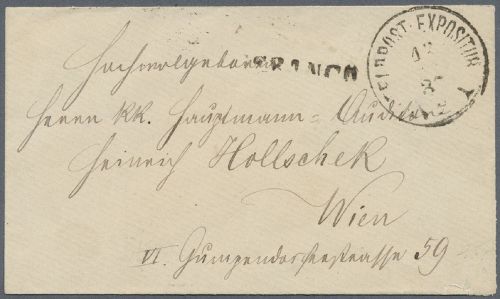 Hochwolgeboren
FRANCO
FELDPOST-EXPOSITUR
Herrn kk. Hauptmann-Auditor
Heinrich Hollschek
Wien
VI. Gumpendorferstrasse 59